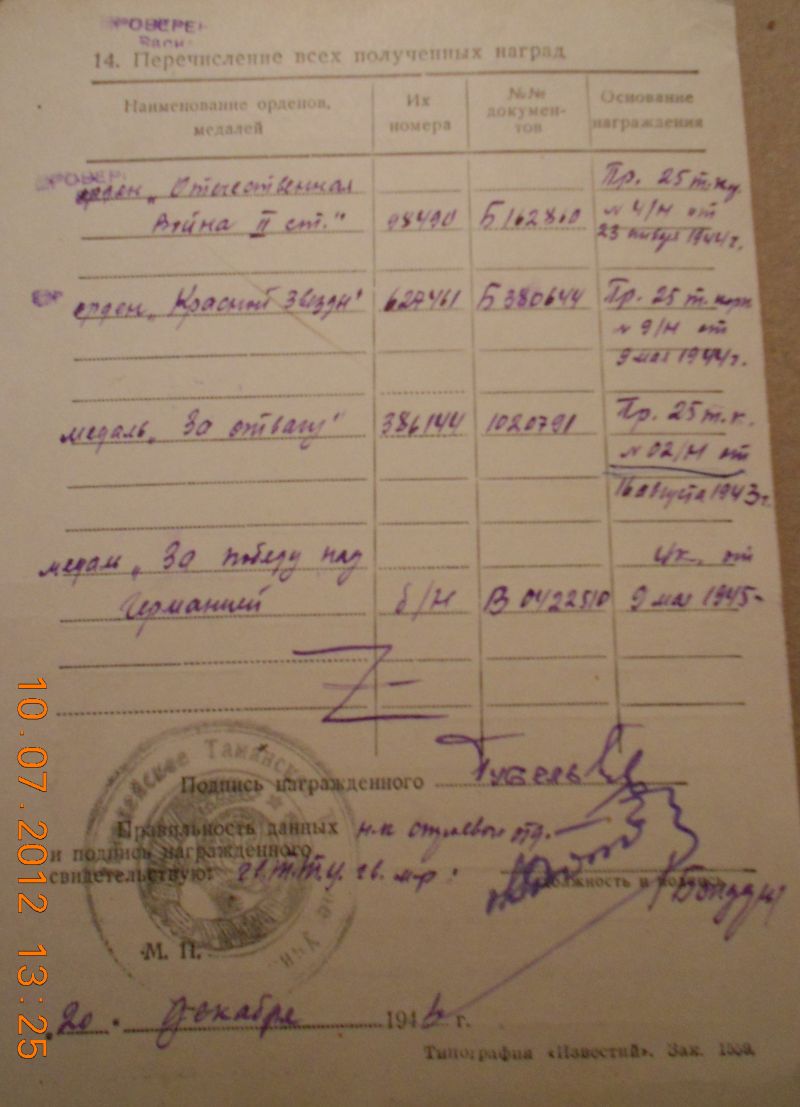 ПРОВЕРЕ
14. Перечисление всех полученных наград
Наименование орденов, медалей
Их номера
№№ документов
Основание награждения
орден „Отечественная
Война II ст."
98490
Б 162860
Пр. 25 т.
№ 4/н от
23 января 1944 г.
орден „Красной Звезды"
627461
Б 380644
Пр. 25 т. корп
№ 9/н от
9 мая 1944 г.
медаль „За отвагу"
386144
1020791
Пр. 25 т.к.
№ 02/н от
16 августа 1943 г.
медаль „За победу над
Германией
б/н
В 0422510
Ук. от
9 мая 1945
Подпись награжденного
Правильность данных
и подпись награжденного
свидетельствую:
н-к строевого отд.
гв. м-р
Должность и подпись
М. П.
20 декабря 1946 г.
Типография «Известий». Зак. 1559.
10.07.2012 13:25